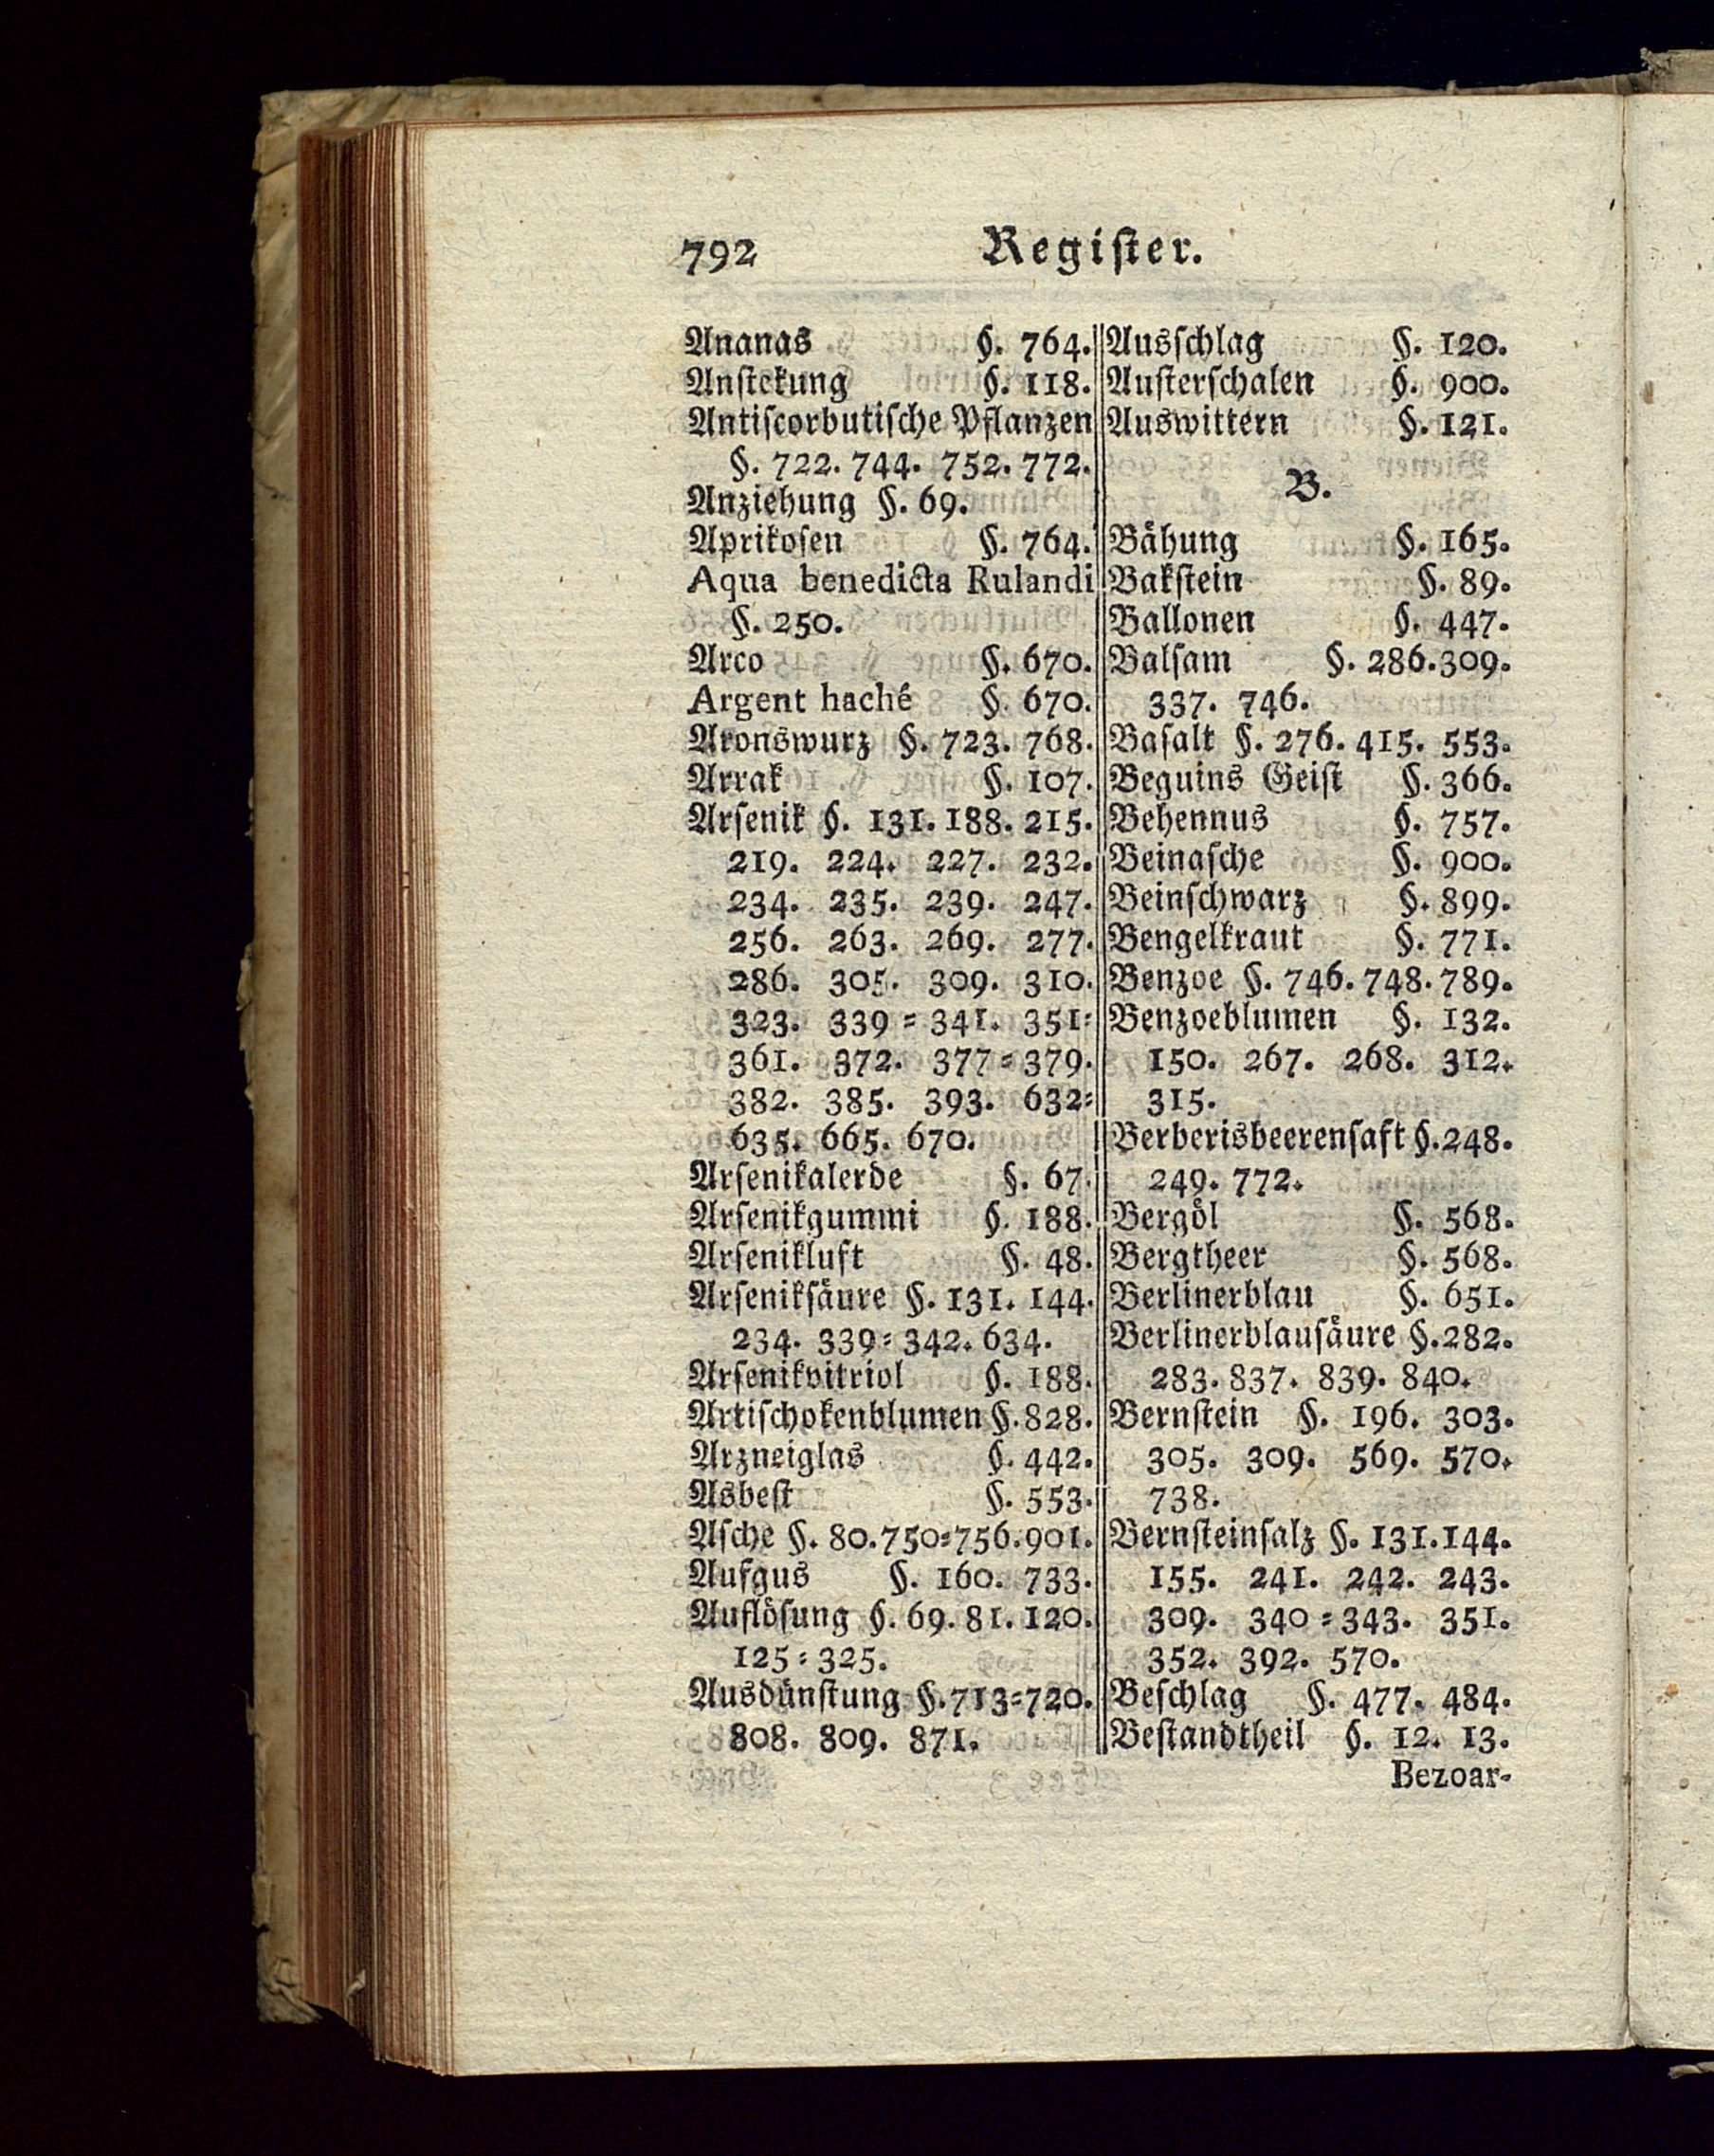 792 Regiſter.
Ananas §. 764.
Anſtekung §. 118.
Antiſcorbutiſche Pflanzen
§. 722. 744. 752. 772.
Anziehung §. 69.
Aprikoſen §. 764.
Aqua benedicta Rulandi
§. 250.
Arco §. 670.
Argent haché §. 670.
Aronswurz §. 723. 768.
Arrak §. 107.
Arſenik §. 131. 188. 215.
219. 224. 227. 232.
234. 235. 239. 247.
256. 263. 269. 277.
286. 305. 309. 310.
323. 339 = 341. 351=
361. 372. 377 = 379.
382. 385. 393. 632=
635. 665. 670.
Arſenikalerde §. 67.
Arſenikgummi §. 188.
Arſenikluft §. 48.
Arſenikſäure §. 131. 144.
234. 339 = 342. 634.
Arſenikvitriol §. 188.
Artiſchokenblumen §. 828.
Arzneiglas §. 442.
Asbeſt §. 553.
Aſche §. 80. 750=756. 901.
Aufgus §. 160. 733.
Auflöſung §. 69. 81. 120.
125 = 325.
Ausdünſtung §. 713=720.
808. 809. 871.
Ausſchlag §. 120.
Auſterſchalen §. 900.
Auswittern §. 121.
B.
Bähung §. 165.
Bakſtein §. 89.
Ballonen §. 447.
Balſam §. 286. 309.
337. 746.
Baſalt §. 276. 415. 553.
Beguins Geiſt §. 366.
Behennus §. 757.
Beinaſche §. 900.
Beinſchwarz §. 899.
Bengelkraut §. 771.
Benzoe §. 746. 748. 789.
Benzoeblumen §. 132.
150. 267. 268. 312.
315.
Berberisbeerenſaft §. 248.
249. 772.
Bergöl §. 568.
Bergtheer §. 568.
Berlinerblau §. 651.
Berlinerblauſäure §. 282.
283. 837. 839. 840.
Bernſtein §. 196. 303.
305. 309. 569. 570.
738.
Bernſteinſalz §. 131. 144.
155. 241. 242. 243.
309. 340 = 343. 351.
352. 392. 570.
Beſchlag §. 477. 484.
Beſtandtheil §. 12. 13.
Bezoar-